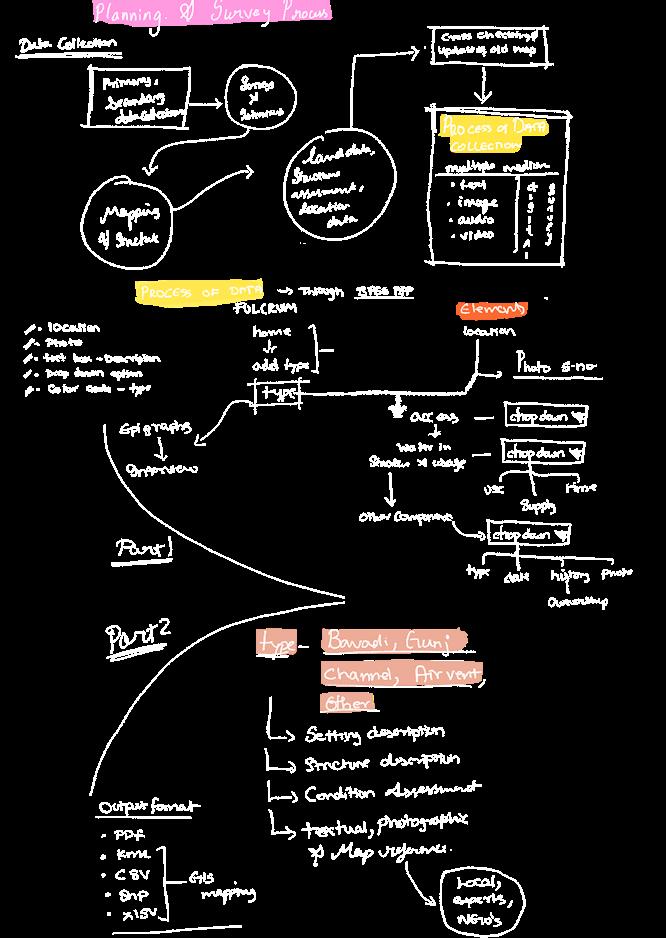 Planning & Survey Process
Data Collection
Primary,
Secondary
data collection
Mapping
of Structure
land data,
Structure
assessment,
location
data
Cross Checking/
Updating old map
PROCESS OF DATA
COLLECTION
multiple medium
• text
• image
• audio
• video
digital
PROCESS OF DATA → Through
FULCRUM
• location
• Photo
• text box - Description
• Drop down option
• Color code - type
home
add type
type
Epigraphs
Interview
Elements
location
Photo s-no
access
chop down
Water in
Structure & usage
chop down
use
Supply
time
Other Components
chop down
type date history photo
Ownership
Part 1
Part 2
type - Bavadi, Gunj
Channel, Air vent,
Other
Setting description
Structure description
Condition Assessment
textual, photographic
& Map reference.
Local,
experts,
NGO's
Output format
• PDF
• KML
• CSV
• SHP
GIS
mapping